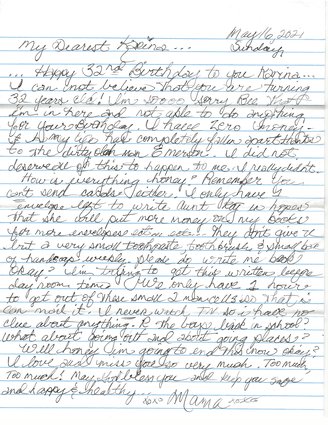 May 16, 2021
Sunday,
My Dearest Karina...
... Happy 32nd Birthday to you Karina...
I can not believe that you are turning
32 years old! I'm soooo sorry Bee that
I'm in here and not able to do anything
for your Birthday. I have zero money.
& my life has completely fallen apart thanks
to the dirty old man Emerson. I did not
deserve all of this to happen to me. I really didn't.
How is everything honey? Remember you
can't send cards either. I only have 1
envelope left to write Aunt in hopes
that she will put more money on my books
for more envelopes etc. They don't give us
but a very small toothpaste toothbrush & small bar
of handsoap weekly. please do write me back
okay? I'm trying to get this written before
day room time. We only have 1 hour
to get out of these small 2 man cells so that I
can mail it. I never watch TV so I have no
clue about anything. R the boys back in school?
What about going out and going places?
Well honey I'm going to end this now okay?
I love and miss you so very much. Too much,
Too much! May God bless you and keep you safe
and happy & healthy...
xoxo Mama xoxo